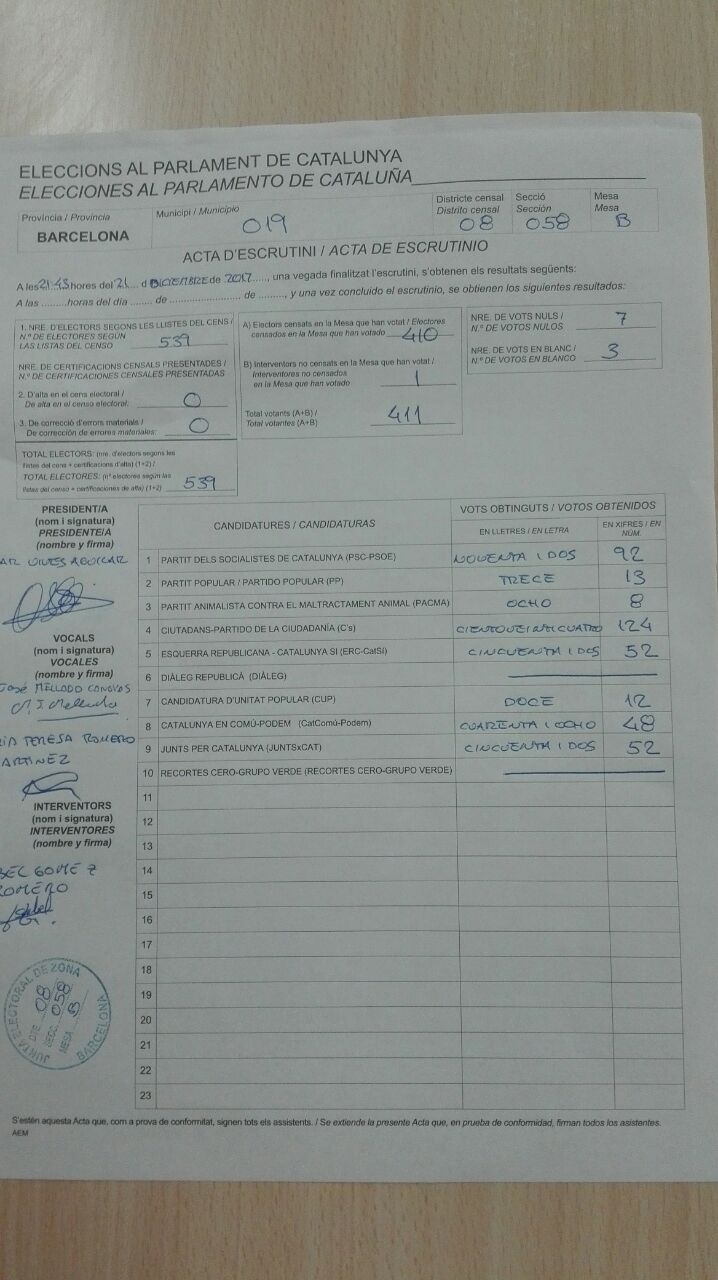 ELECCIONS AL PARLAMENT DE CATALUNYA
ELECCIONES AL PARLAMENTO DE CATALUÑA
Província / Provincia
BARCELONA
Municipi / Municipio
019
Districte censal
Distrito censal
08
Secció
Sección
058
Mesa
Mesa
B
ACTA D'ESCRUTINI / ACTA DE ESCRUTINIO
A les 21:48 hores del 21 d DICIEMBRE de 2017, una vegada finalitzat l'escrutini, s'obtenen els resultats següents:
A las ......... horas del día ....... de ....................... de ........, y una vez concluido el escrutinio, se obtienen los siguientes resultados:
1. NRE. D'ELECTORS SEGONS LES LLISTES DEL CENS /
N.º DE ELECTORES SEGÚN
LAS LISTAS DEL CENSO 539
NRE. DE CERTIFICACIONS CENSALS PRESENTADES /
N.º DE CERTIFICACIONES CENSALES PRESENTADAS
2. D'alta en el cens electoral /
De alta en el censo electoral: 0
3. De correcció d'errors materials /
De corrección de errores materiales: 0
TOTAL ELECTORS: (nre. d'electors segons les
llistes del cens + certificacions d'alta) (1+2) /
TOTAL ELECTORES: (nº electores según las
listas del censo + certificaciones de alta) (1+2) 539
A) Electors censats en la Mesa que han votat / Electores
censados en la Mesa que han votado 410
B) Interventors no censats en la Mesa que han votat /
Interventores no censados
en la Mesa que han votado 1
Total votants (A+B) /
Total votantes (A+B) 411
NRE. DE VOTS NULS /
N.º DE VOTOS NULOS 7
NRE. DE VOTS EN BLANC /
N.º DE VOTOS EN BLANCO 3
PRESIDENT/A
(nom i signatura)
PRESIDENTE/A
(nombre y firma)
VOCALS
(nom i signatura)
VOCALES
(nombre y firma)
JOSÉ MELLADO CANOVAS
TERESA ROMERO
INTERVENTORS
(nom i signatura)
INTERVENTORES
(nombre y firma)
GOMEZ
CANDIDATURES / CANDIDATURAS
VOTS OBTINGUTS / VOTOS OBTENIDOS
EN LLETRES / EN LETRA
EN XIFRES / EN NÚM.
1 PARTIT DELS SOCIALISTES DE CATALUNYA (PSC-PSOE) NOVENTA I DOS 92
2 PARTIT POPULAR / PARTIDO POPULAR (PP) TRECE 13
3 PARTIT ANIMALISTA CONTRA EL MALTRACTAMENT ANIMAL (PACMA) OCHO 8
4 CIUTADANS-PARTIDO DE LA CIUDADANÍA (C's) CIENTOVEINTICUATRO 124
5 ESQUERRA REPUBLICANA - CATALUNYA SÍ (ERC-CatSí) CINCUENTA I DOS 52
6 DIÀLEG REPUBLICÀ (DIÀLEG)
7 CANDIDATURA D'UNITAT POPULAR (CUP) DOCE 12
8 CATALUNYA EN COMÚ-PODEM (CatComú-Podem) CUARENTA I OCHO 48
9 JUNTS PER CATALUNYA (JUNTSxCAT) CINCUENTA I DOS 52
10 RECORTES CERO-GRUPO VERDE (RECORTES CERO-GRUPO VERDE)
11
12
13
14
15
16
17
18
19
20
21
22
23
JUNTA ELECTORAL DE ZONA
DTE. 08
SECC. 058
MESA B
BARCELONA
S'estén aquesta Acta que, com a prova de conformitat, signen tots els assistents. / Se extiende la presente Acta que, en prueba de conformidad, firman todos los asistentes.
AEM